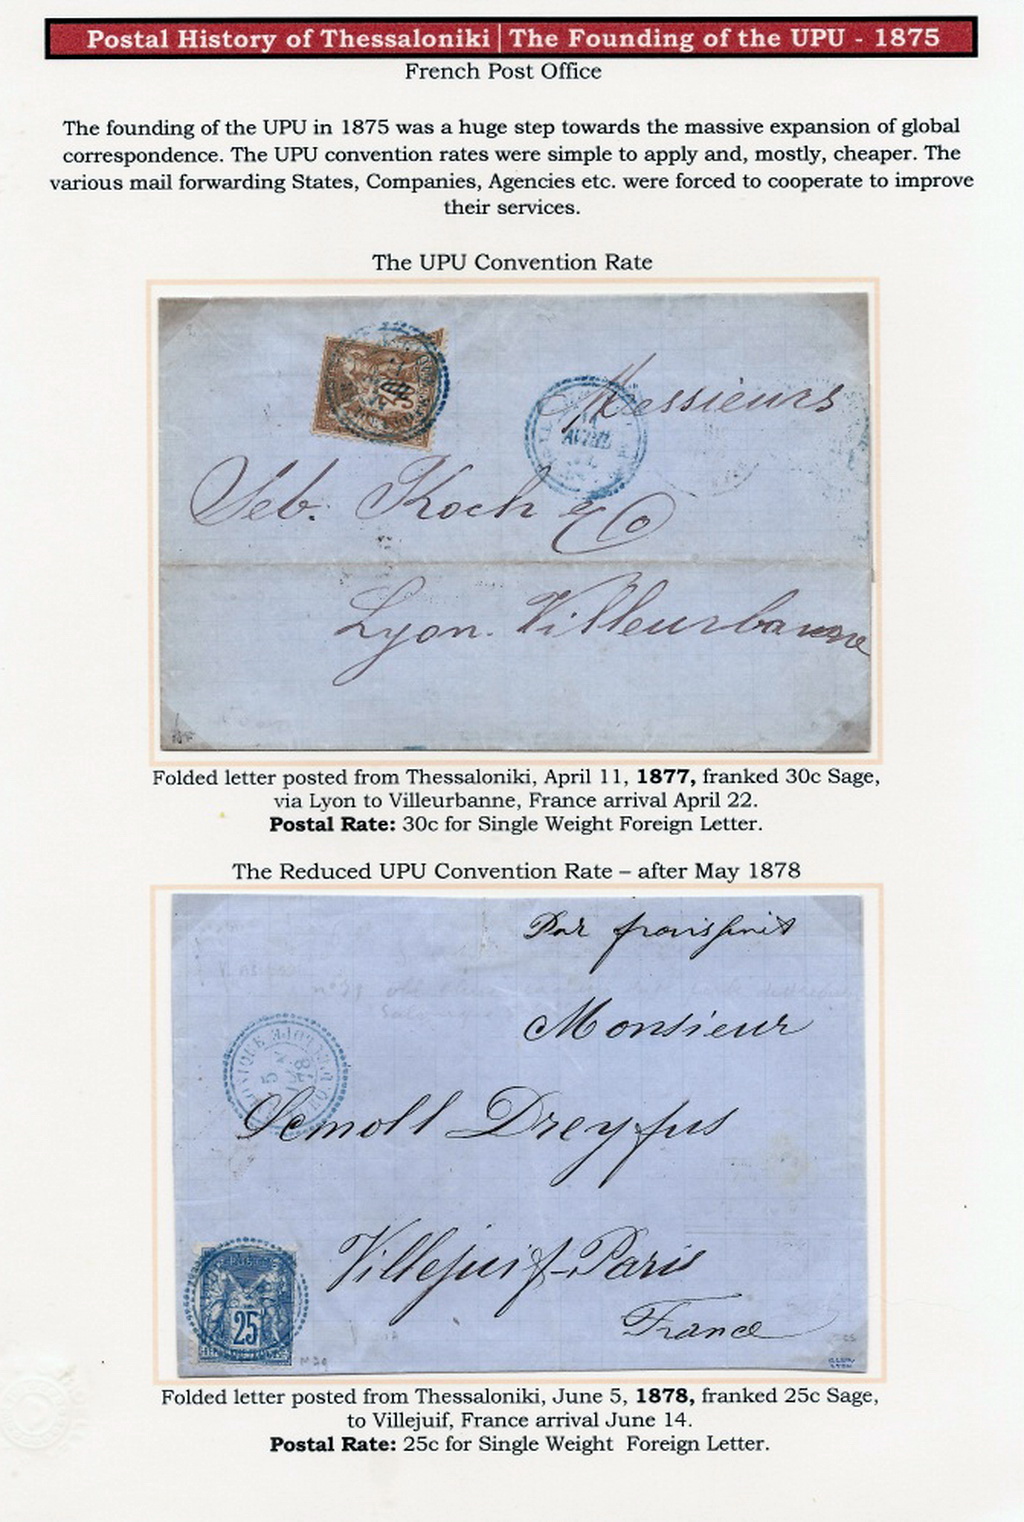 Postal History of Thessaloniki | The Founding of the UPU - 1875
French Post Office
The founding of the UPU in 1875 was a huge step towards the massive expansion of global
correspondence. The UPU convention rates were simple to apply and, mostly, cheaper. The
various mail forwarding States, Companies, Agencies etc. were forced to cooperate to improve
their services.
The UPU Convention Rate
Messieurs
11
AVRIL
Seb. Koch & Co
Lyon. Villeurbanne
Folded letter posted from Thessaloniki, April 11, 1877, franked 30c Sage,
via Lyon to Villeurbanne, France arrival April 22.
Postal Rate: 30c for Single Weight Foreign Letter.
The Reduced UPU Convention Rate – after May 1878
Par
Monsieur
5
78
Dreyfus
Villejuif-Paris
France
25
Folded letter posted from Thessaloniki, June 5, 1878, franked 25c Sage,
to Villejuif, France arrival June 14.
Postal Rate: 25c for Single Weight  Foreign Letter.